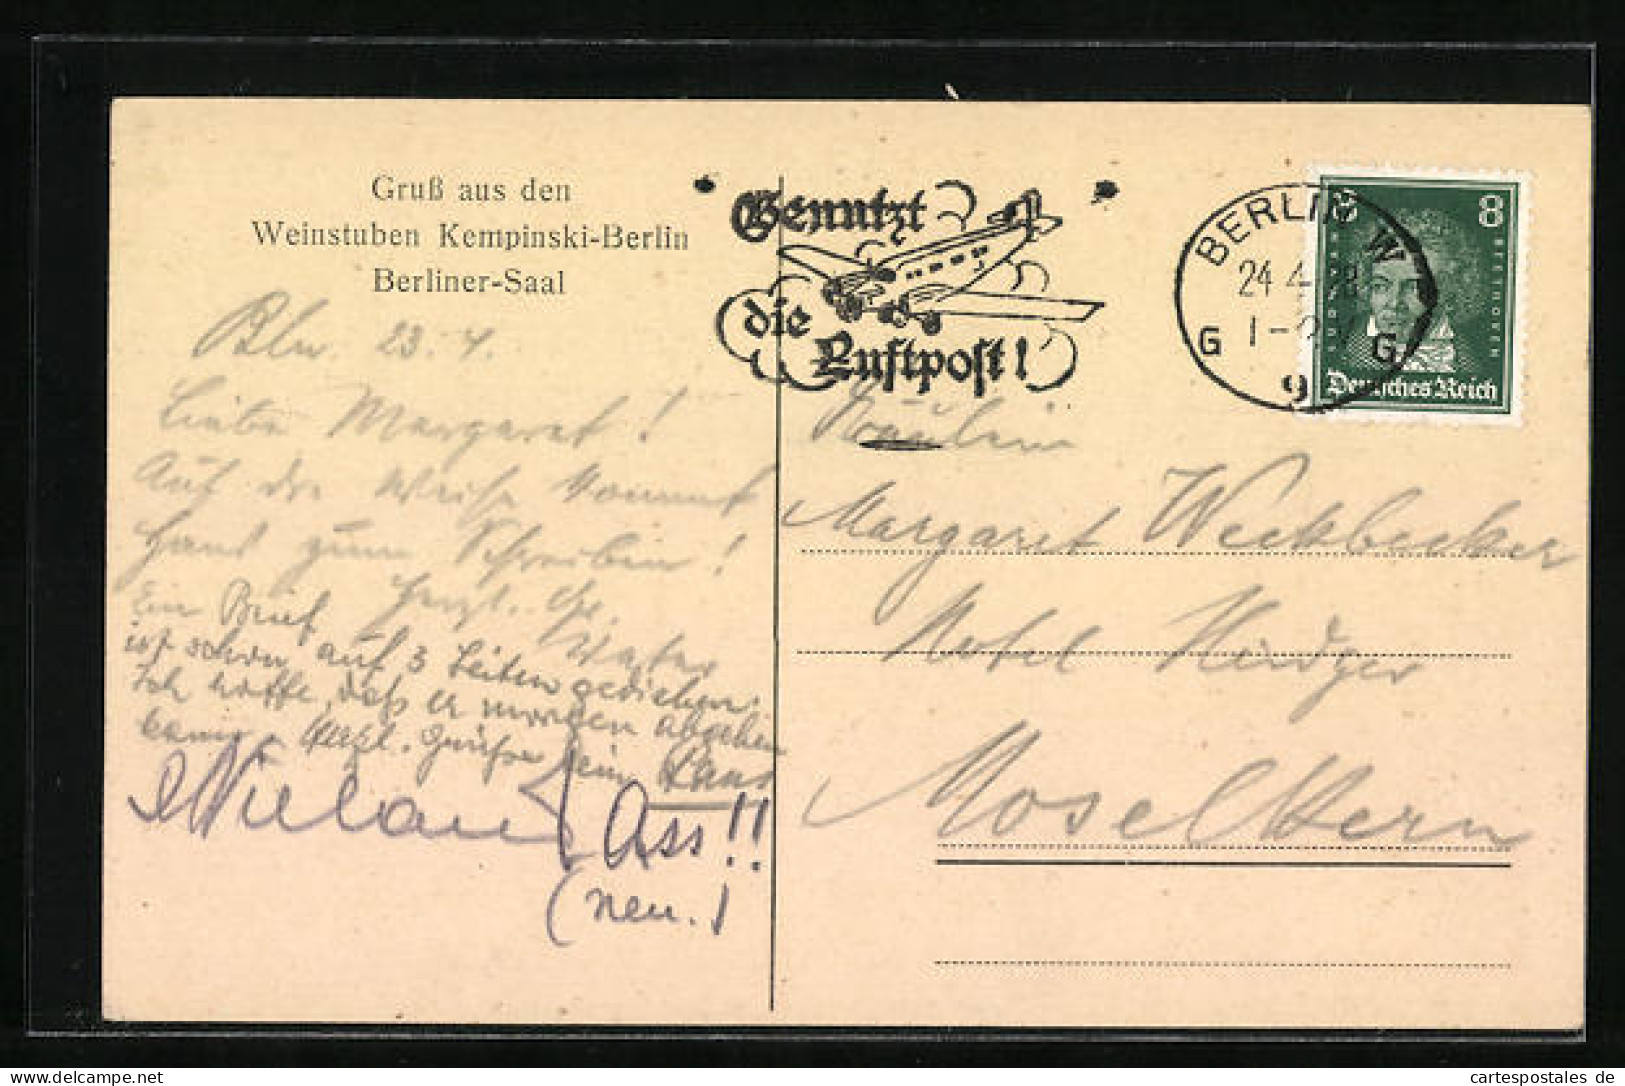 Gruß aus den
Weinstuben Kempinski-Berlin
Berliner-Saal
Benutzt
die
Luftpost!
BERLIN W
24.4.28
1-2 V
G G
9
8 8
LUDWIG VAN BEETHOVEN
Deutsches Reich
Bln. 23.4.
Liebe Margaret!
Auf die Weise kommt
Hans zum Schreiben!
Herzl. Gr.
Walter
Ein Brief
ist schon auf 3 Seiten gediehen.
Ich hoffe, daß er morgen abgehen
kann. Herzl. Grüße Dein Hans
Ass!!
(neu.)
Fräulein
Margaret Weckbecker
Hotel
Moselkern
cartespostales de